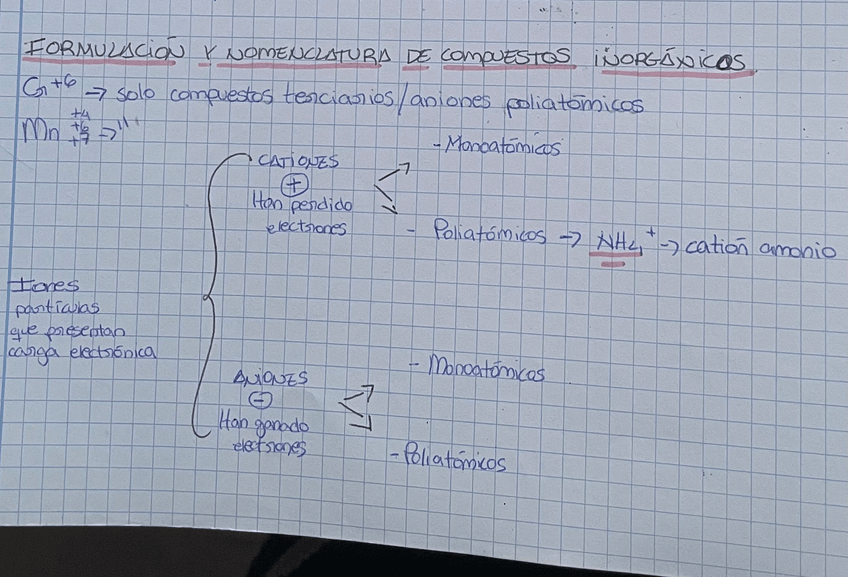 FORMULACIÓN Y NOMENCLATURA DE COMPUESTOS INORGÁNICOS
Cr+6 → solo compuestos terciarios/aniones poliatómicos
Mn +4 +6 +7 → "
CATIONES
+
Han perdido
electrones
- Monoatómicos
- Poliatómicos → NH4+ → catión amonio
Iones
partículas
que presentan
carga electrónica
ANIONES
-
Han ganado
electrones
- Monoatómicos
- Poliatómicos